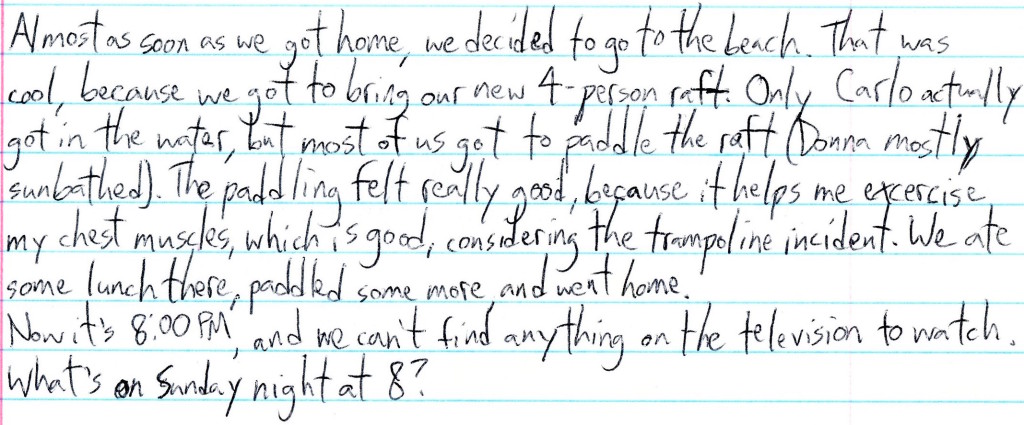 Almost as soon as we got home, we decided to go to the beach. That was
cool, because we got to bring our new 4-person raft. Only Carlo actually
got in the water, but most of us got to paddle the raft (Donna mostly
sunbathed). The paddling felt really good, because it helps me excercise
my chest muscles, which is good, considering the trampoline incident. We ate
some lunch there, paddled some more, and went home.
Now it's 8:00 PM, and we can't find anything on the television to watch.
What's on Sunday night at 8?